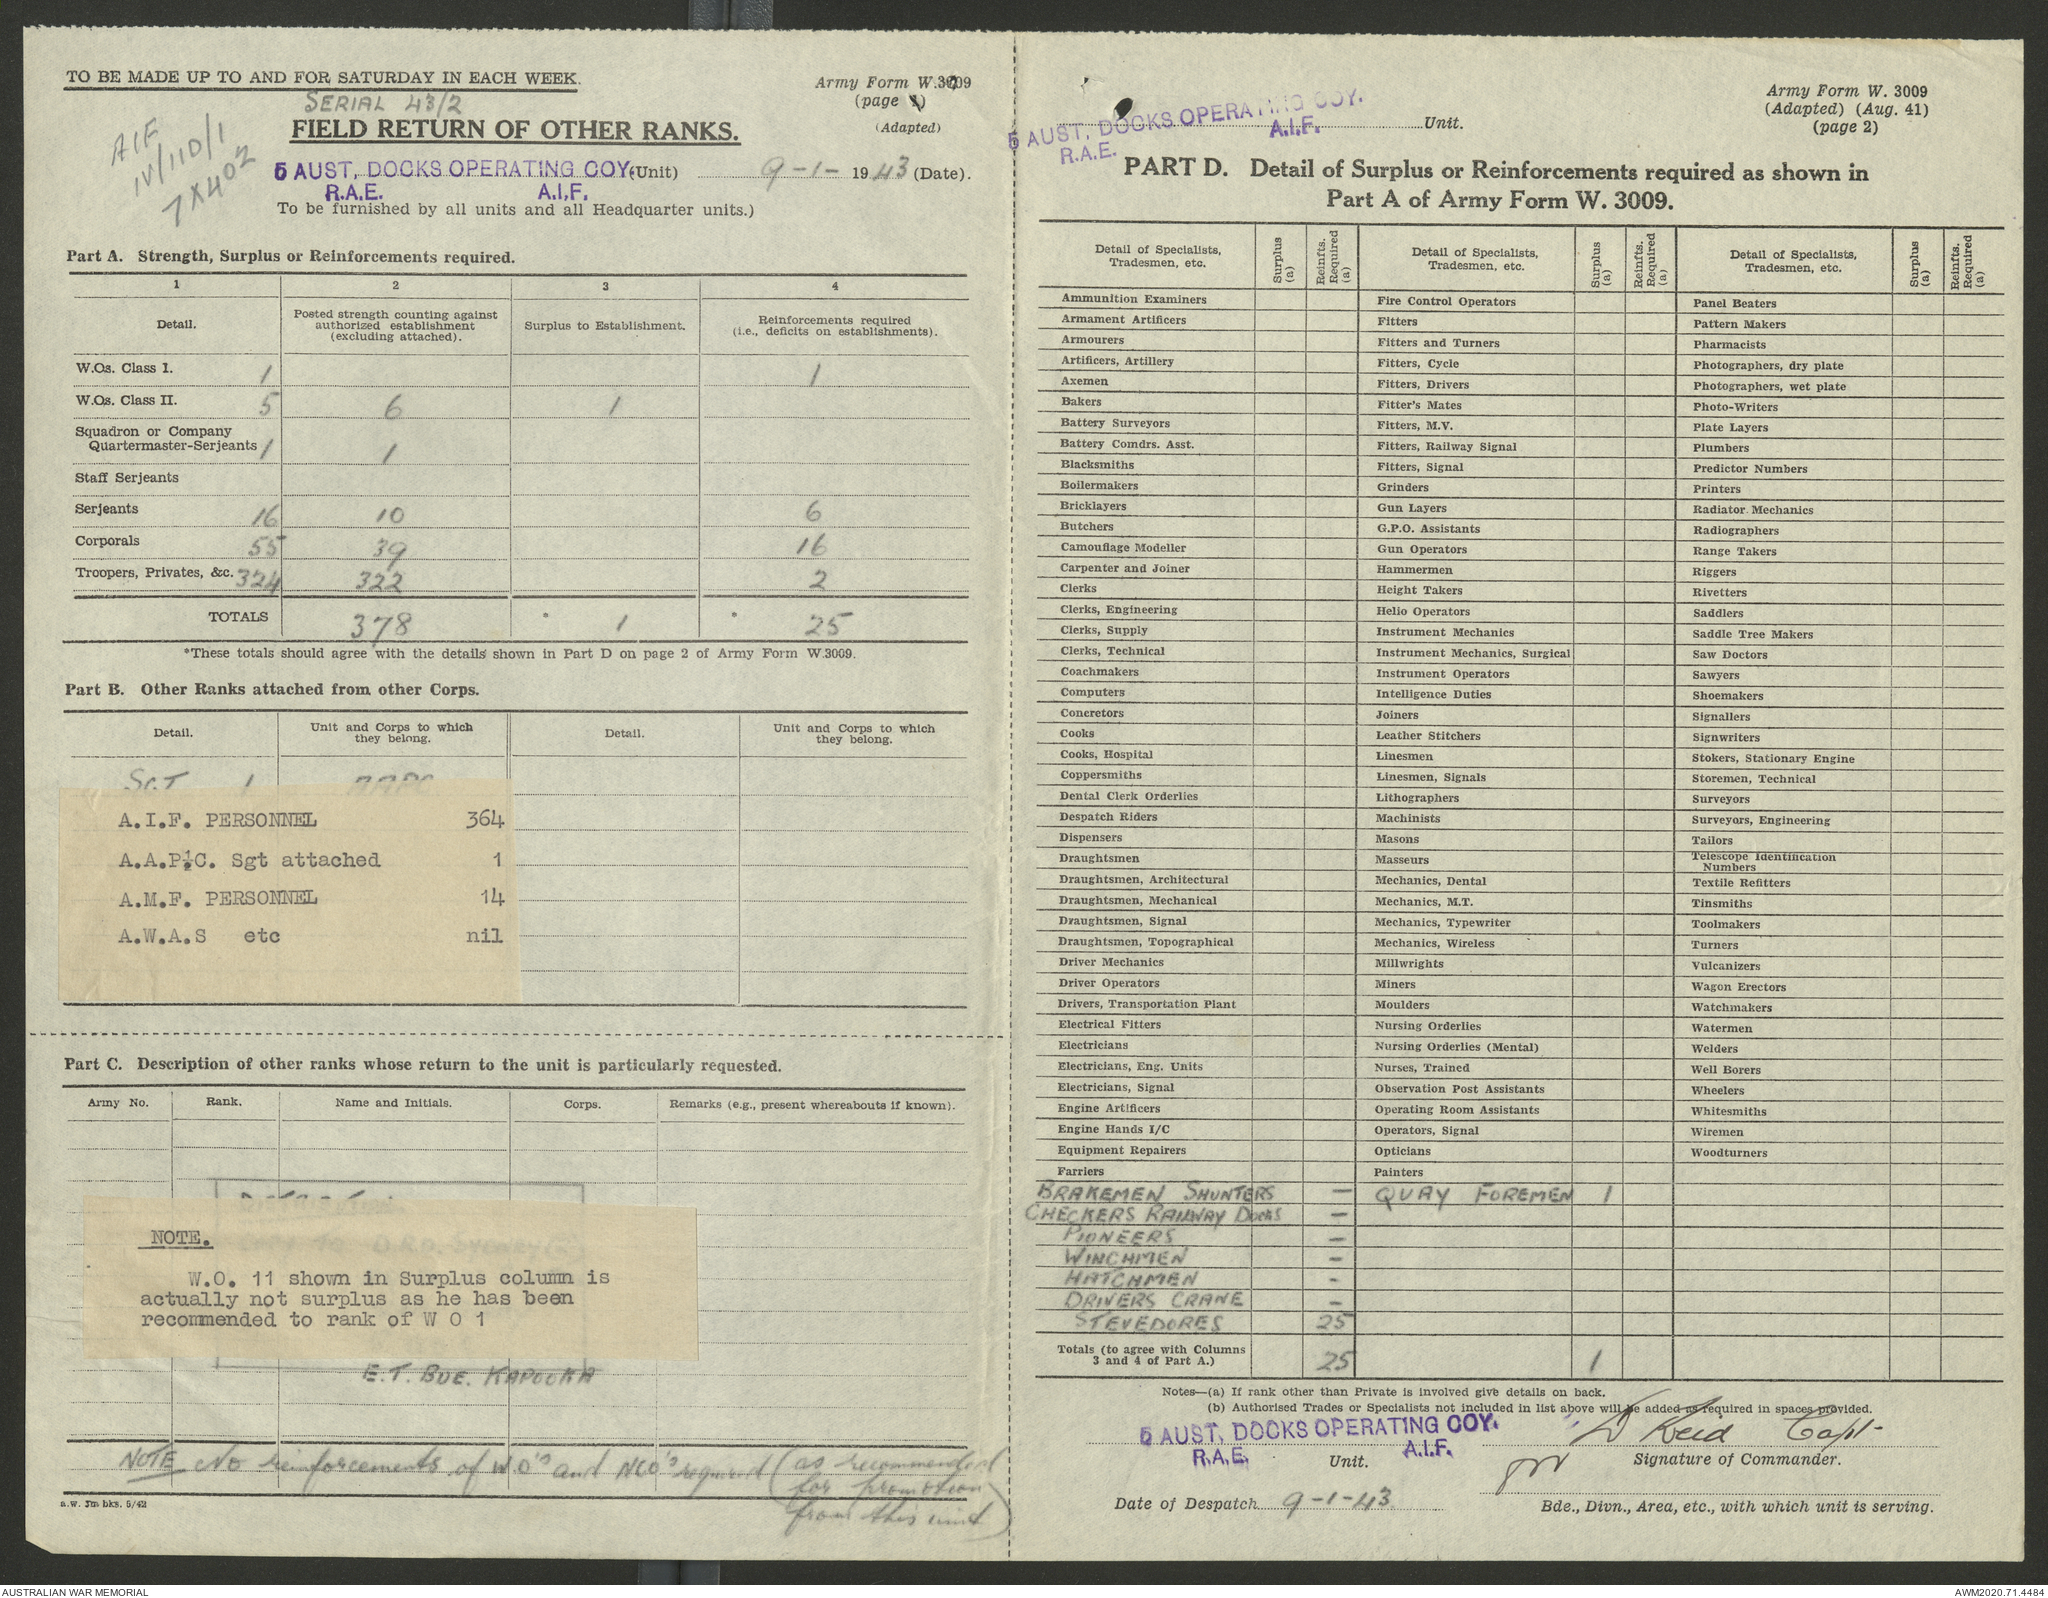 TO BE MADE UP TO AND FOR SATURDAY IN EACH WEEK.
SERIAL 43/2
Army Form W.3009
(page 1)
(Adapted)
AIF
IV/110/1
7X402
FIELD RETURN OF OTHER RANKS.
5 AUST. DOCKS OPERATING COY. (Unit) 9-1- 1943 (Date).
R.A.E. A.I.F.
To be furnished by all units and all Headquarter units.)
Part A. Strength, Surplus or Reinforcements required.
1 2 3 4
Detail. Posted strength counting against authorized establishment (excluding attached). Surplus to Establishment. Reinforcements required (i.e., deficits on establishments).
W.Os. Class I. 1 1
W.Os. Class II. 5 6 1
Squadron or Company
Quartermaster-Serjeants 1 1
Staff Serjeants
Serjeants 16 10 6
Corporals 55 39 16
Troopers, Privates, &c. 324 322 2
TOTALS 378 * 1 * 25
*These totals should agree with the details shown in Part D on page 2 of Army Form W.3009.
Part B. Other Ranks attached from other Corps.
Detail. Unit and Corps to which they belong. Detail. Unit and Corps to which they belong.
SGT 1 AAPC
A.I.F. PERSONNEL 364
A.A.P.C. Sgt attached 1
A.M.F. PERSONNEL 14
A.W.A.S etc nil
Part C. Description of other ranks whose return to the unit is particularly requested.
Army No. Rank. Name and Initials. Corps. Remarks (e.g., present whereabouts if known).
NOTE.
W.O. 11 shown in Surplus column is
actually not surplus as he has been
recommended to rank of W O 1
E.T. BDE. KAPOOKA
NOTE No reinforcements of W.O's and NCO's required (as recommended
for promotion
from this unit)
a.w. 3m bks. 5/42
5 AUST. DOCKS OPERATING COY. Unit.
R.A.E. A.I.F.
Army Form W. 3009
(Adapted) (Aug. 41)
(page 2)
PART D. Detail of Surplus or Reinforcements required as shown in
Part A of Army Form W. 3009.
Detail of Specialists, Tradesmen, etc. Surplus (a) Reinfts. Required (a) Detail of Specialists, Tradesmen, etc. Surplus (a) Reinfts. Required (a) Detail of Specialists, Tradesmen, etc. Surplus (a) Reinfts. Required (a)
Ammunition Examiners Fire Control Operators Panel Beaters
Armament Artificers Fitters Pattern Makers
Armourers Fitters and Turners Pharmacists
Artificers, Artillery Fitters, Cycle Photographers, dry plate
Axemen Fitters, Drivers Photographers, wet plate
Bakers Fitter's Mates Photo-Writers
Battery Surveyors Fitters, M.V. Plate Layers
Battery Comdrs. Asst. Fitters, Railway Signal Plumbers
Blacksmiths Fitters, Signal Predictor Numbers
Boilermakers Grinders Printers
Bricklayers Gun Layers Radiator Mechanics
Butchers G.P.O. Assistants Radiographers
Camouflage Modeller Gun Operators Range Takers
Carpenter and Joiner Hammermen Riggers
Clerks Height Takers Rivetters
Clerks, Engineering Helio Operators Saddlers
Clerks, Supply Instrument Mechanics Saddle Tree Makers
Clerks, Technical Instrument Mechanics, Surgical Saw Doctors
Coachmakers Instrument Operators Sawyers
Computers Intelligence Duties Shoemakers
Concretors Joiners Signallers
Cooks Leather Stitchers Signwriters
Cooks, Hospital Linesmen Stokers, Stationary Engine
Coppersmiths Linesmen, Signals Storemen, Technical
Dental Clerk Orderlies Lithographers Surveyors
Despatch Riders Machinists Surveyors, Engineering
Dispensers Masons Tailors
Draughtsmen Masseurs Telescope Identification Numbers
Draughtsmen, Architectural Mechanics, Dental Textile Refitters
Draughtsmen, Mechanical Mechanics, M.T. Tinsmiths
Draughtsmen, Signal Mechanics, Typewriter Toolmakers
Draughtsmen, Topographical Mechanics, Wireless Turners
Driver Mechanics Millwrights Vulcanizers
Driver Operators Miners Wagon Erectors
Drivers, Transportation Plant Moulders Watchmakers
Electrical Fitters Nursing Orderlies Watermen
Electricians Nursing Orderlies (Mental) Welders
Electricians, Eng. Units Nurses, Trained Well Borers
Electricians, Signal Observation Post Assistants Wheelers
Engine Artificers Operating Room Assistants Whitesmiths
Engine Hands I/C Operators, Signal Wiremen
Equipment Repairers Opticians Woodturners
Farriers Painters
BRAKEMEN SHUNTERS — QUAY FOREMEN 1
CHECKERS RAILWAY DOCKS —
PIONEERS —
WINCHMEN —
HATCHMEN -
DRIVERS CRANE —
STEVEDORES 25
Totals (to agree with Columns 3 and 4 of Part A.) 25 1
Notes—(a) If rank other than Private is involved give details on back.
(b) Authorised Trades or Specialists not included in list above will be added as required in spaces provided.
5 AUST. DOCKS OPERATING COY. D Reid Capt
R.A.E. A.I.F. Unit. Signature of Commander.
Date of Despatch 9-1-43 Bde., Divn., Area, etc., with which unit is serving.
AUSTRALIAN WAR MEMORIAL AWM2020.71.4484